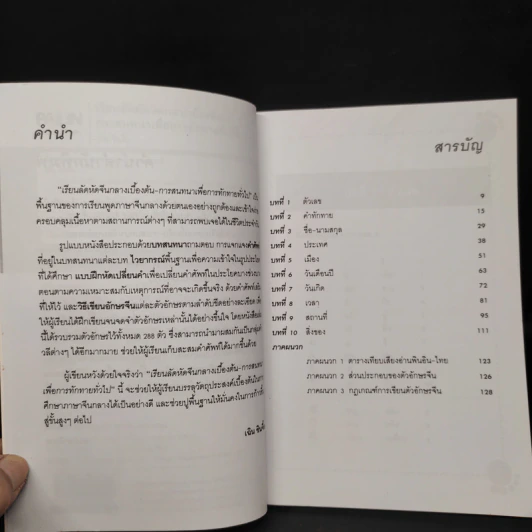 คำนำ
"เรียนลัดหัดจีนกลางเบื้องต้น-การสนทนาเพื่อการทักทายทั่วไป" เป็น
พื้นฐานของการเรียนพูดภาษาจีนกลางด้วยตนเองอย่างถูกต้องและเข้าใจง่าย
ครอบคลุมเนื้อหาตามสถานการณ์ต่างๆ ที่สามารถพบเจอได้ในชีวิตประจำวัน
รูปแบบหนังสือประกอบด้วยบทสนทนาถามตอบ การแจกแจงคำศัพท์
ที่อยู่ในบทสนทนาแต่ละบท ไวยากรณ์พื้นฐานเพื่อความเข้าใจในรูปประโยค
ที่ได้ศึกษา แบบฝึกหัดเปลี่ยนคำเพื่อเปลี่ยนคำศัพท์ในประโยค
ตอนตามความเหมาะสมกับเหตุการณ์ที่อาจจะเกิดขึ้นจริง ด้วยคำศัพท์
ที่ให้ไว้ และวิธีเขียนอักษรจีนแต่ละตัวอักษรตามลำดับขีดอย่างละเอียด
ให้ผู้เรียนได้ฝึกเขียนจนจดจำตัวอักษรเหล่านั้นได้อย่างขึ้นใจ โดยหนังสือ
นี้ได้รวบรวมตัวอักษรไว้ทั้งหมด 268 ตัว ซึ่งสามารถนำมาผสมกันเป็นกลุ่มคำ
วลีต่างๆ ได้อีกมากมาย ช่วยให้ผู้เรียนเก็บสะสมคำศัพท์ได้มากขึ้นด้วย
ผู้เขียนหวังด้วยใจจริงว่า "เรียนลัดหัดจีนกลางเบื้องต้น-การสนทนา
เพื่อการทักทายทั่วไป" นี้ จะช่วยให้ผู้เรียนบรรลุวัตถุประสงค์เบื้องต้นในการ
ศึกษาภาษาจีนกลางได้เป็นอย่างดี และช่วยปูพื้นฐานให้มั่นคงในการก้าว
สู่ขั้นสูงๆ ต่อไป
เฉิน
สารบัญ
บทที่ 1 ตัวเลข 9
บทที่ 2 คำทักทาย 15
บทที่ 3 ชื่อ-นามสกุล 29
บทที่ 4 ประเทศ 38
บทที่ 5 เมือง 51
บทที่ 6 วันเดือนปี 63
บทที่ 7 วันเกิด 72
บทที่ 8 เวลา 81
บทที่ 9 สถานที่ 95
บทที่ 10 สิ่งของ 111
ภาคผนวก
ภาคผนวก 1 ตารางเทียบเสียงอ่านพินอิน-ไทย 123
ภาคผนวก 2 ส่วนประกอบของตัวอักษรจีน 126
ภาคผนวก 3 กฎเกณฑ์การเขียนตัวอักษรจีน 128